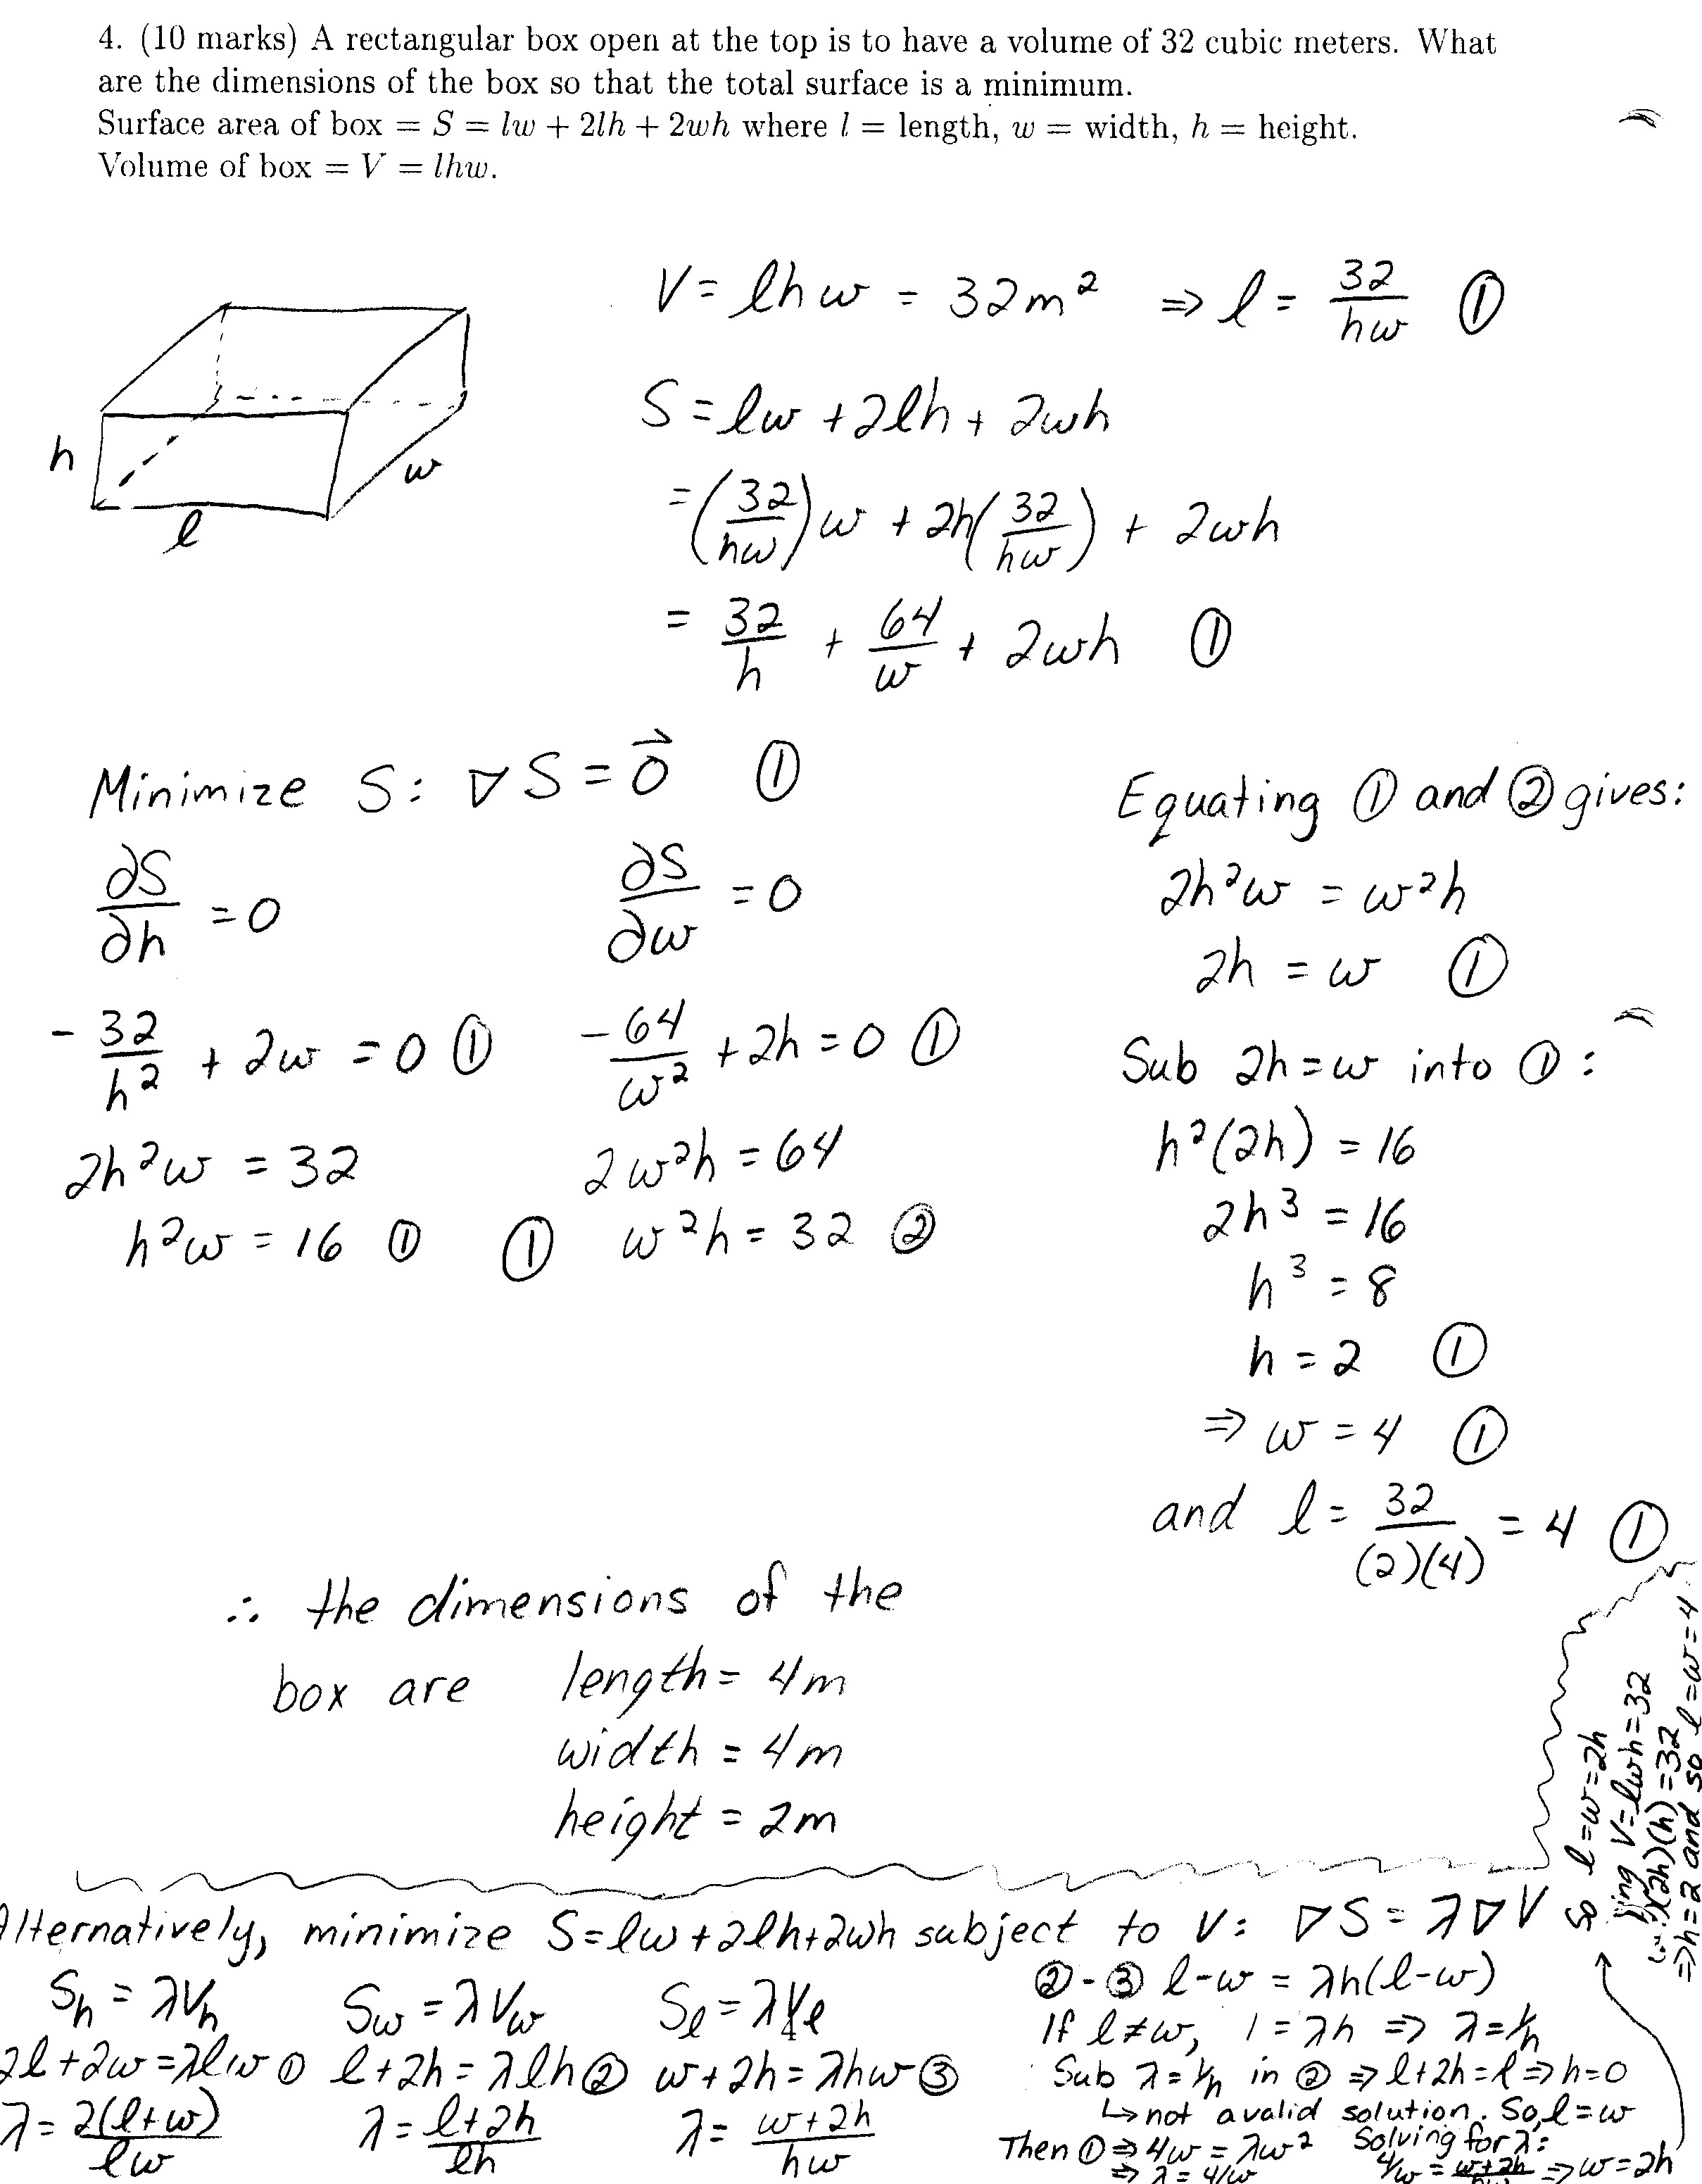 4. (10 marks) A rectangular box open at the top is to have a volume of 32 cubic meters. What
are the dimensions of the box so that the total surface is a minimum.
Surface area of box = S = lw + 2lh + 2wh where l = length, w = width, h = height.
Volume of box = V = lhw.
V = lhw = 32m² ⇒ l = 32/hw ①
S = lw + 2lh + 2wh
= (32/hw)w + 2h(32/hw) + 2wh
= 32/h + 64/w + 2wh ①
h
w
l
Minimize S: ∇S = 0⃗ ①
∂S/∂h = 0
∂S/∂w = 0
-32/h² + 2w = 0 ①
-64/w² + 2h = 0 ①
2h²w = 32
2w²h = 64
h²w = 16 ①
① w²h = 32 ②
Equating ① and ② gives:
2h²w = w²h
2h = w ①
Sub 2h = w into ①:
h²(2h) = 16
2h³ = 16
h³ = 8
h = 2 ①
⇒ w = 4 ①
and l = 32/(2)(4) = 4 ①
∴ the dimensions of the
box are length = 4m
width = 4m
height = 2m
Alternatively, minimize S = lw + 2lh + 2wh subject to V: ∇S = λ∇V
Sh = λVh
Sw = λVw
Sl = λVl
2l + 2w = λlw ①
l + 2h = λlh ②
w + 2h = λhw ③
λ = 2(l+w)/lw
λ = l+2h/lh
λ = w+2h/hw
②-③ l-w = λh(l-w)
If l≠w, 1 = λh ⇒ λ = 1/h
Sub λ = 1/h in ② ⇒ l+2h = l ⇒ h = 0
↳ not a valid solution. So, l = w
Then ① ⇒ 4w = λw²
⇒ λ = 4/w
Solving for λ:
4/w = w+2h/hw ⇒ w = 2h
So l = w = 2h
V = lwh = 32
(2h)(h) = 32
⇒ h = 2 and so l = w = 4